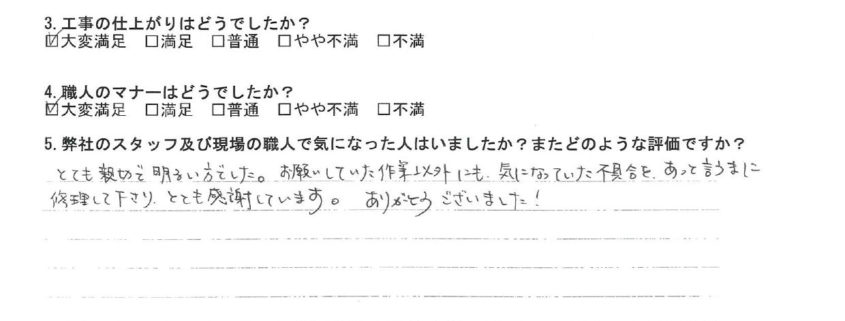 3. 工事の仕上がりはどうでしたか？
☑大変満足 □満足 □普通 □やや不満 □不満
4. 職人のマナーはどうでしたか？
☑大変満足 □満足 □普通 □やや不満 □不満
5. 弊社のスタッフ及び現場の職人で気になった人はいましたか？またどのような評価ですか？
とても親切で明るい方でした。お願いしていた作業以外にも、気になっていた不具合を、あっと言うまに
修理して下さり、とても感謝しています。ありがとうございました！